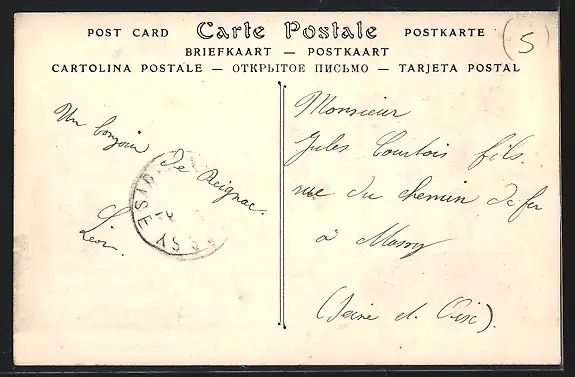 POST CARD Carte Postale POSTKARTE
BRIEFKAART — POSTKAART
CARTOLINA POSTALE — ОТКРЫТОЕ ПИСЬМО — TARJETA POSTAL
(5)
Un bonjour
de Reignac.
Léon.
Monsieur
Jules Courtois fils.
rue du chemin de fer
à Massy
(Seine et Oise).